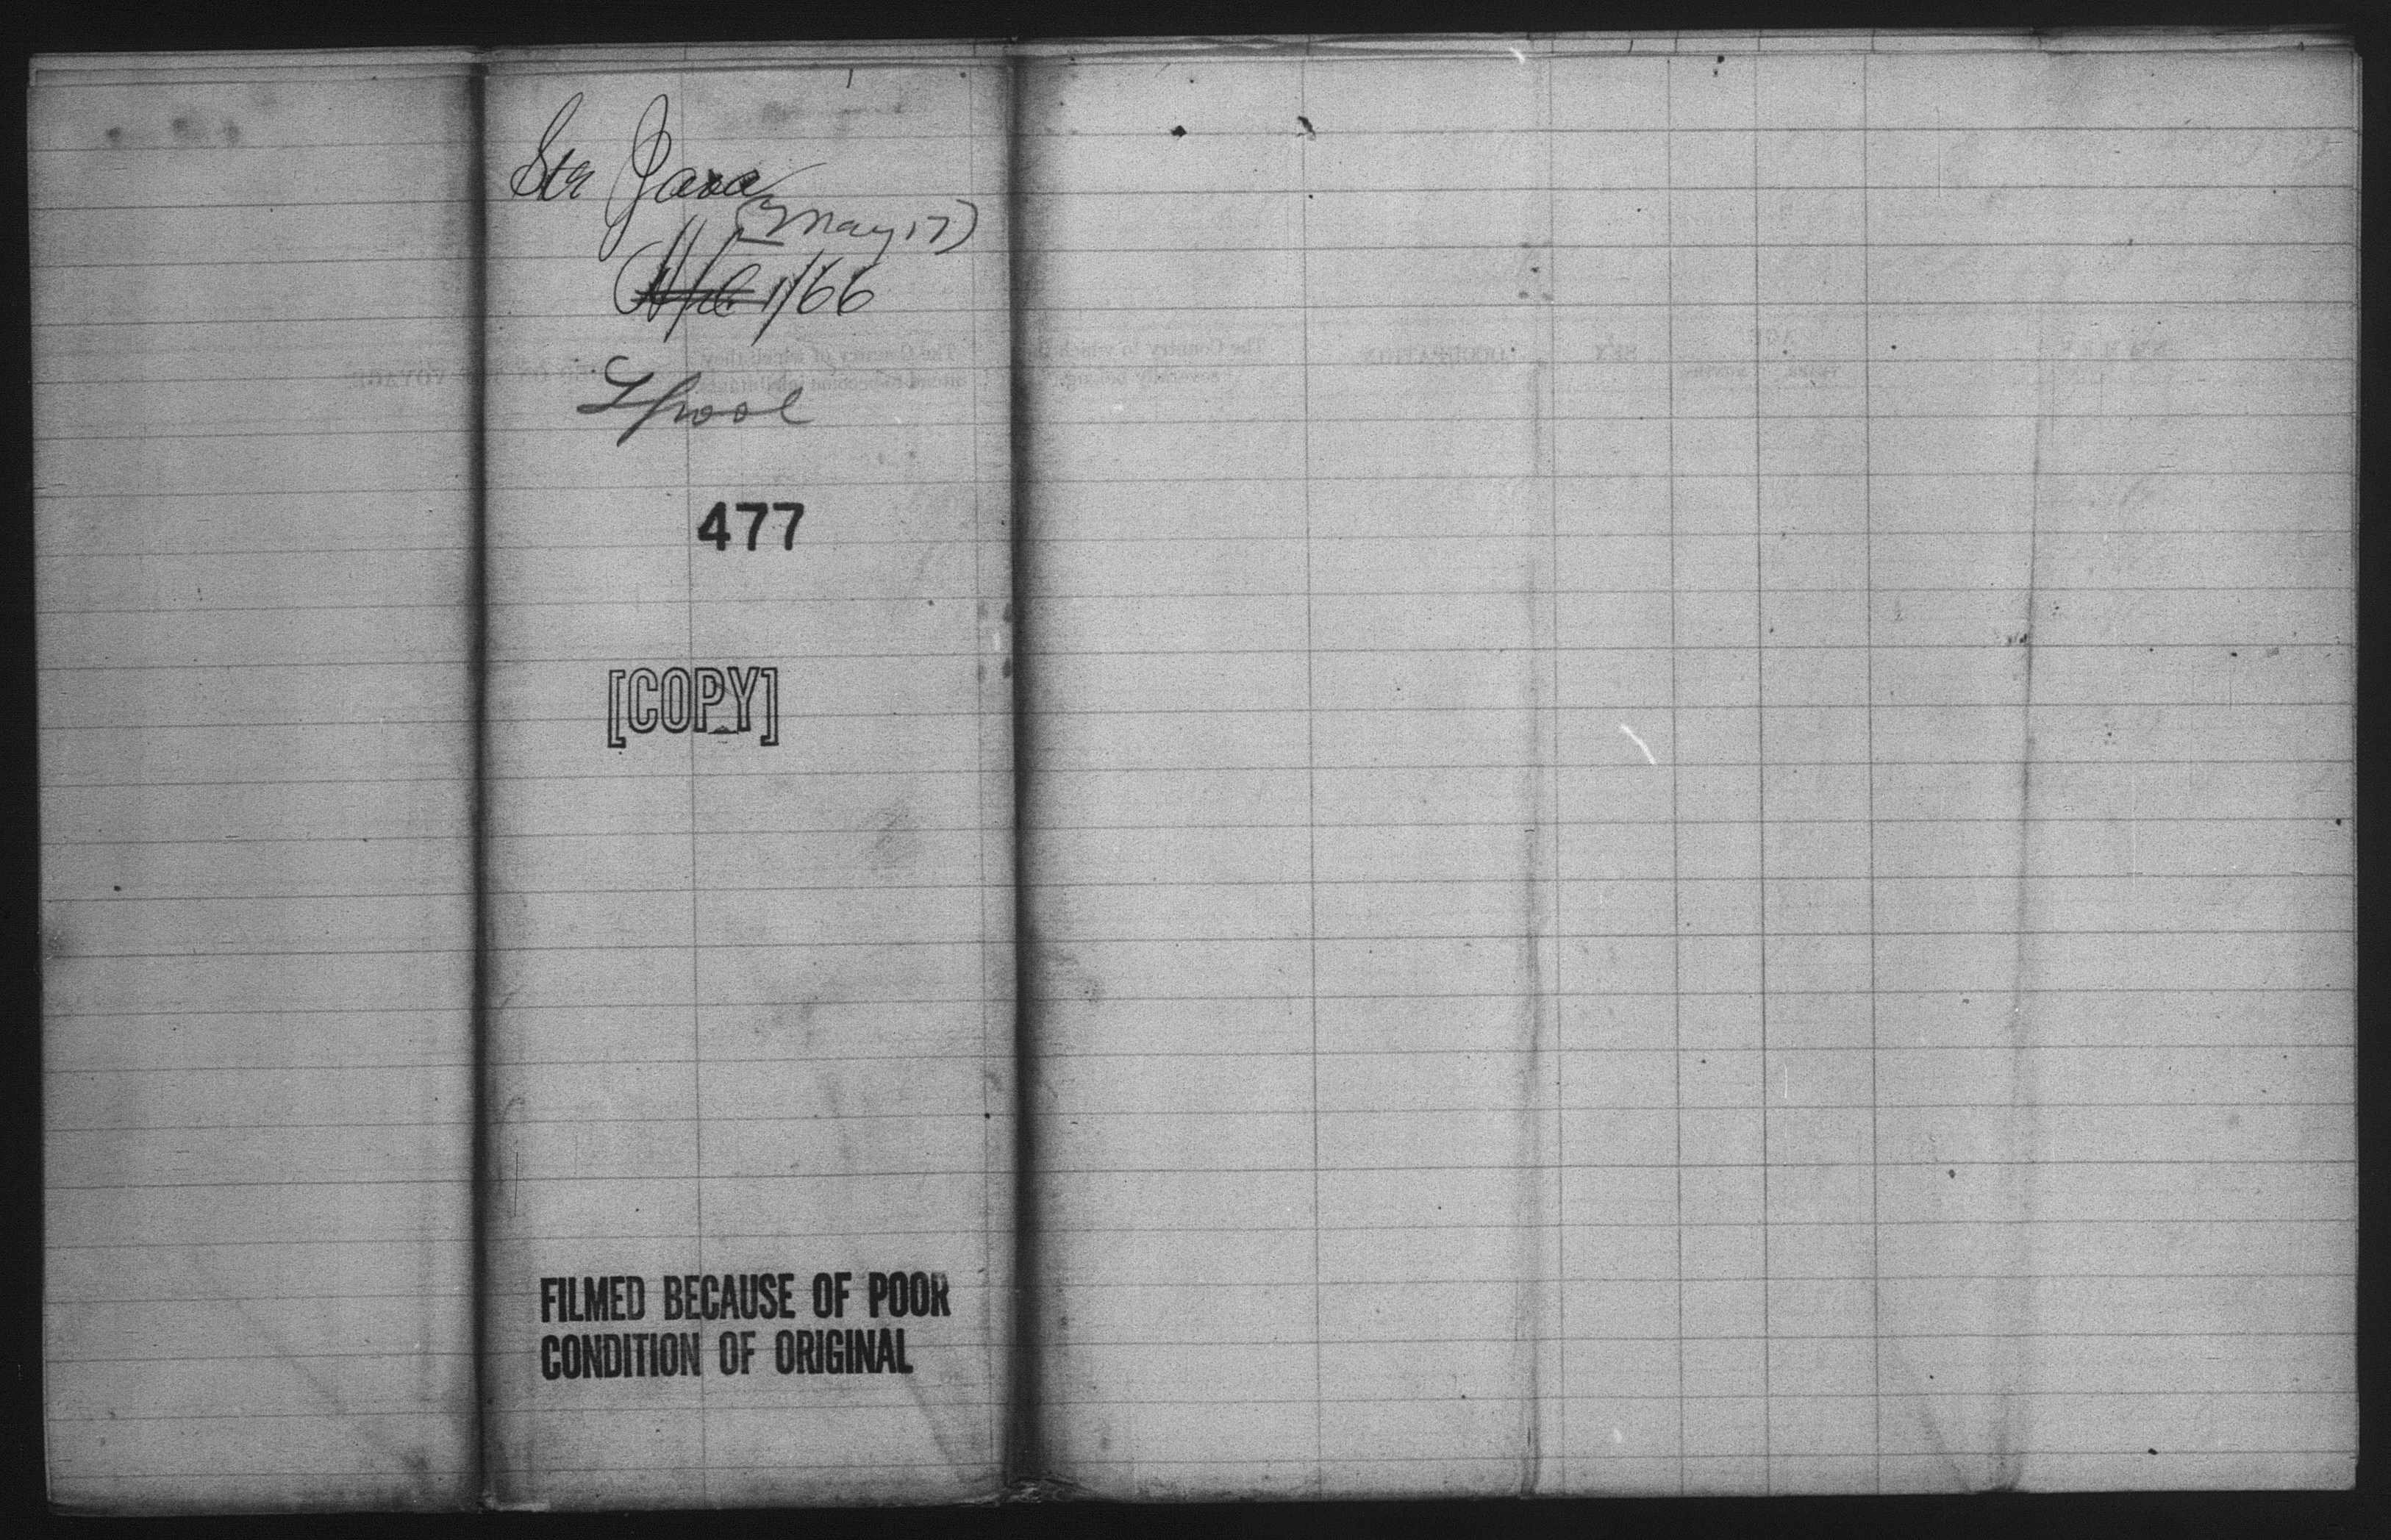 Str Java
(May 17)
Apl 1/66
Lpool
477
[COPY]
FILMED BECAUSE OF POOR
CONDITION OF ORIGINAL